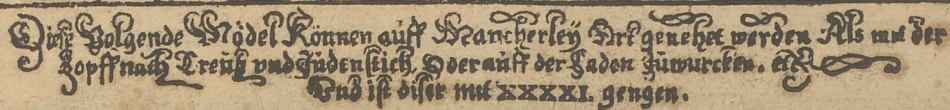 Diese Volgende Mödel Können auff Mancherley Art genehet werden Als mit der
Zopff nach Creutz vnd Judenstich, Oder auff der Faden Zuwurcken. etc.
Vnd ist diser mit XXXXI. gengen.